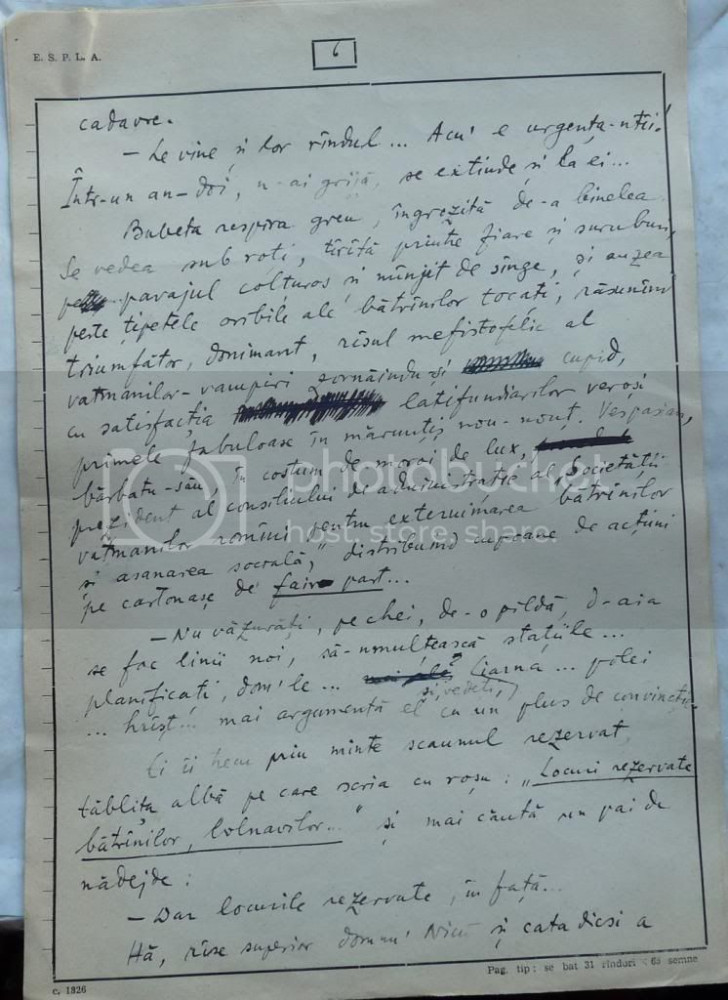 E. S. P. L. A.
6
cadavre.
– Le vine și lor rîndul... Acu' e urgența-ntîi!
Într-un an-doi, n-ai grijă, se extinde și la ei...
Babeta respira greu, îngrozită de-a binelea.
Se vedea sub roți, tîrîtă printre fiare și șuruburi,
pavajul colțuros și mînjit de sînge, și auzea
peste țipetele oribile ale bătrînilor tocați, răsunînd
triumfător, dominant, rîsul mefistofelic al
vatmanilor-vampiri zornăindu-și cupid,
cu satisfacția latifundiarilor veroși
primele fabuloase în mărunțiș nou-nouț. Vespasian,
bărbatu-său, în costum de moroi de lux,
prezident al consiliului de administrație al „Societății
vatmanilor romîni pentru exterminarea bătrînilor
și asanarea socială," distribuind cupoane de acțiuni
pe cartonașe de faire part...
– Nu văzurăți, pe chei, de-o pildă, d-aia
se fac linii noi, să-nmulțească stațiile...
planificați, dom'le... Iarna... polei
... hrișt... mai argumentă el cu un plus de convingere
și, vedeți,
Ei îi trecu prin minte scaunul rezervat,
tăblița albă pe care scria cu roșu: „Locuri rezervate
bătrînilor, bolnavilor..." și mai căută un pai de
nădejde:
– Dar locurile rezervate, în față...
Hă, rîse superior domnu' Nicu și cata dicsi a
Pag. tip: se bat 31 rînduri × 65 semne
c. 1326
photobucket
host. store. share.